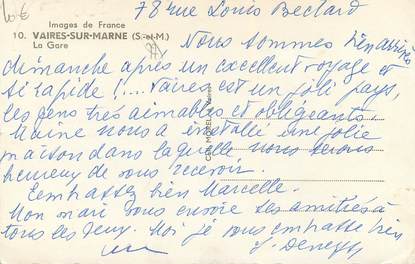 10€
78 rue Louis Beclard
Images de France
10. VAIRES-SUR-MARNE (S.-et-M.)
La Gare
Nous sommes bien arrivés
dimanche après un excellent voyage et
si rapide !... Vaires est un joli pays,
les gens très aimables et obligeants.
nous a installé une jolie
maison dans laquelle nous serons
heureux de vous recevoir.
Embrassez bien Marcelle.
Mon mari vous envoie ses amitiés à
tous les deux. Moi je vous embrasse bien